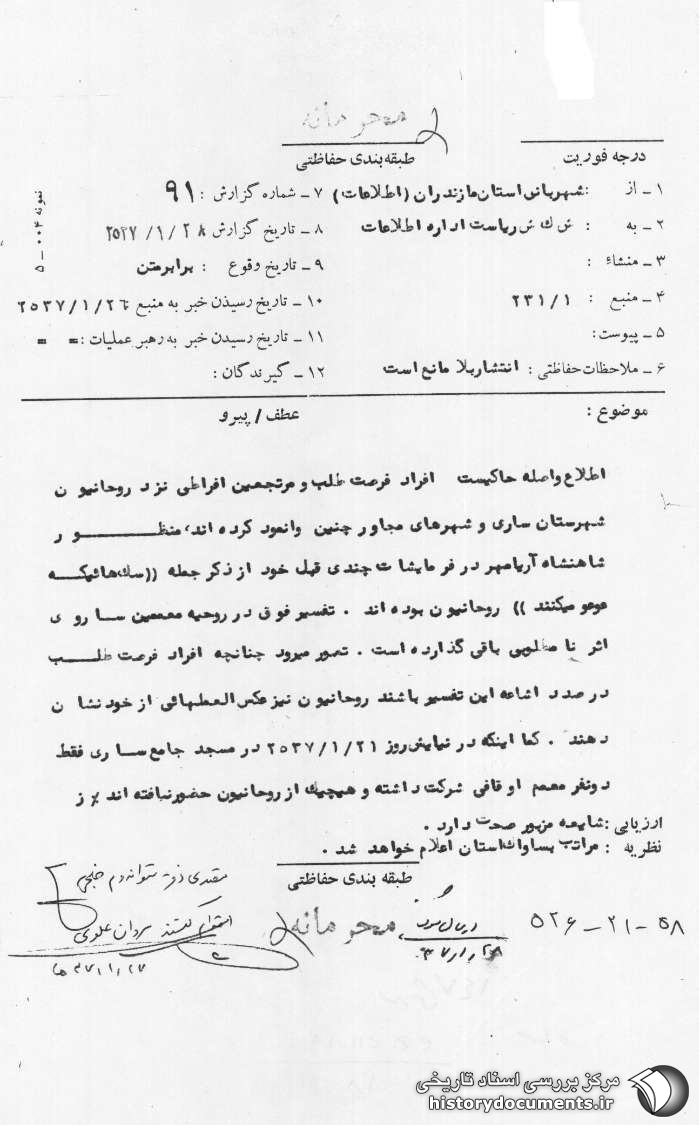 محرمانه
طبقه‌بندی حفاظتی
درجه فوریت
نمونه ۰۰۴ - ۵
۱ - از : شهربانی استان مازندران (اطلاعات)
۷ - شماره گزارش : ۹۱
۲ - به : ش ك ش ریاست اداره اطلاعات
۸ - تاریخ گزارش ۲۵۳۷/۱/۲۸
۳ - منشاء :
۹ - تاریخ وقوع : برابرمتن
۴ - منبع : ۲۳۱/۱
۱۰ - تاریخ رسیذن خبر به منبع ۲۵۳۷/۱/۲۶
۵ - پیوست:
۱۱ - تاریخ رسیدن خبر به رهبر عملیات : = =
۶ - ملاحظات حفاظتی : انتشاربلا مانع است
۱۲ - گیرندگان :
موضوع : عطف/ پیرو
اطلاع واصله حاکیست افراد فرصت طلب و مرتجعین افراطی نزد روحانیون
شهرستان ساری و شهرهای مجاور چنین وانمود کرده اند، منظور
شاهنشاه آریامهر در فرمایشات چندی قبل خود از ذکر جمله ((سگ‌هائیکه
عوعو میکنند )) روحانیون بوده اند . تفسیر فوق در روحیه معممین ساروی
اثر نامطلوبی باقی گذارده است . تصور میرود چنانچه افراد فرصت طلب
درصدد اشاعه این تفسیر باشند روحانیون نیز عکس العملهائی از خود نشان
دهند . کما اینکه در نمایش روز ۲۵۳۷/۱/۲۱ در مسجد جامع ساری فقط
دونفر معمم اوقافی شرکت داشته و هیچیك از روحانیون حضورنیافته اند ٪ ز
ارزیابی : شایعه مزبور صحت دارد .
نظریه : مراتب بساواك استان اعلام خواهد شد .
طبقه بندی حفاظتی
محرمانه
۵۲۶-۲۱-۵۸
مرکز بررسی اسناد تاریخی
historydocuments.ir